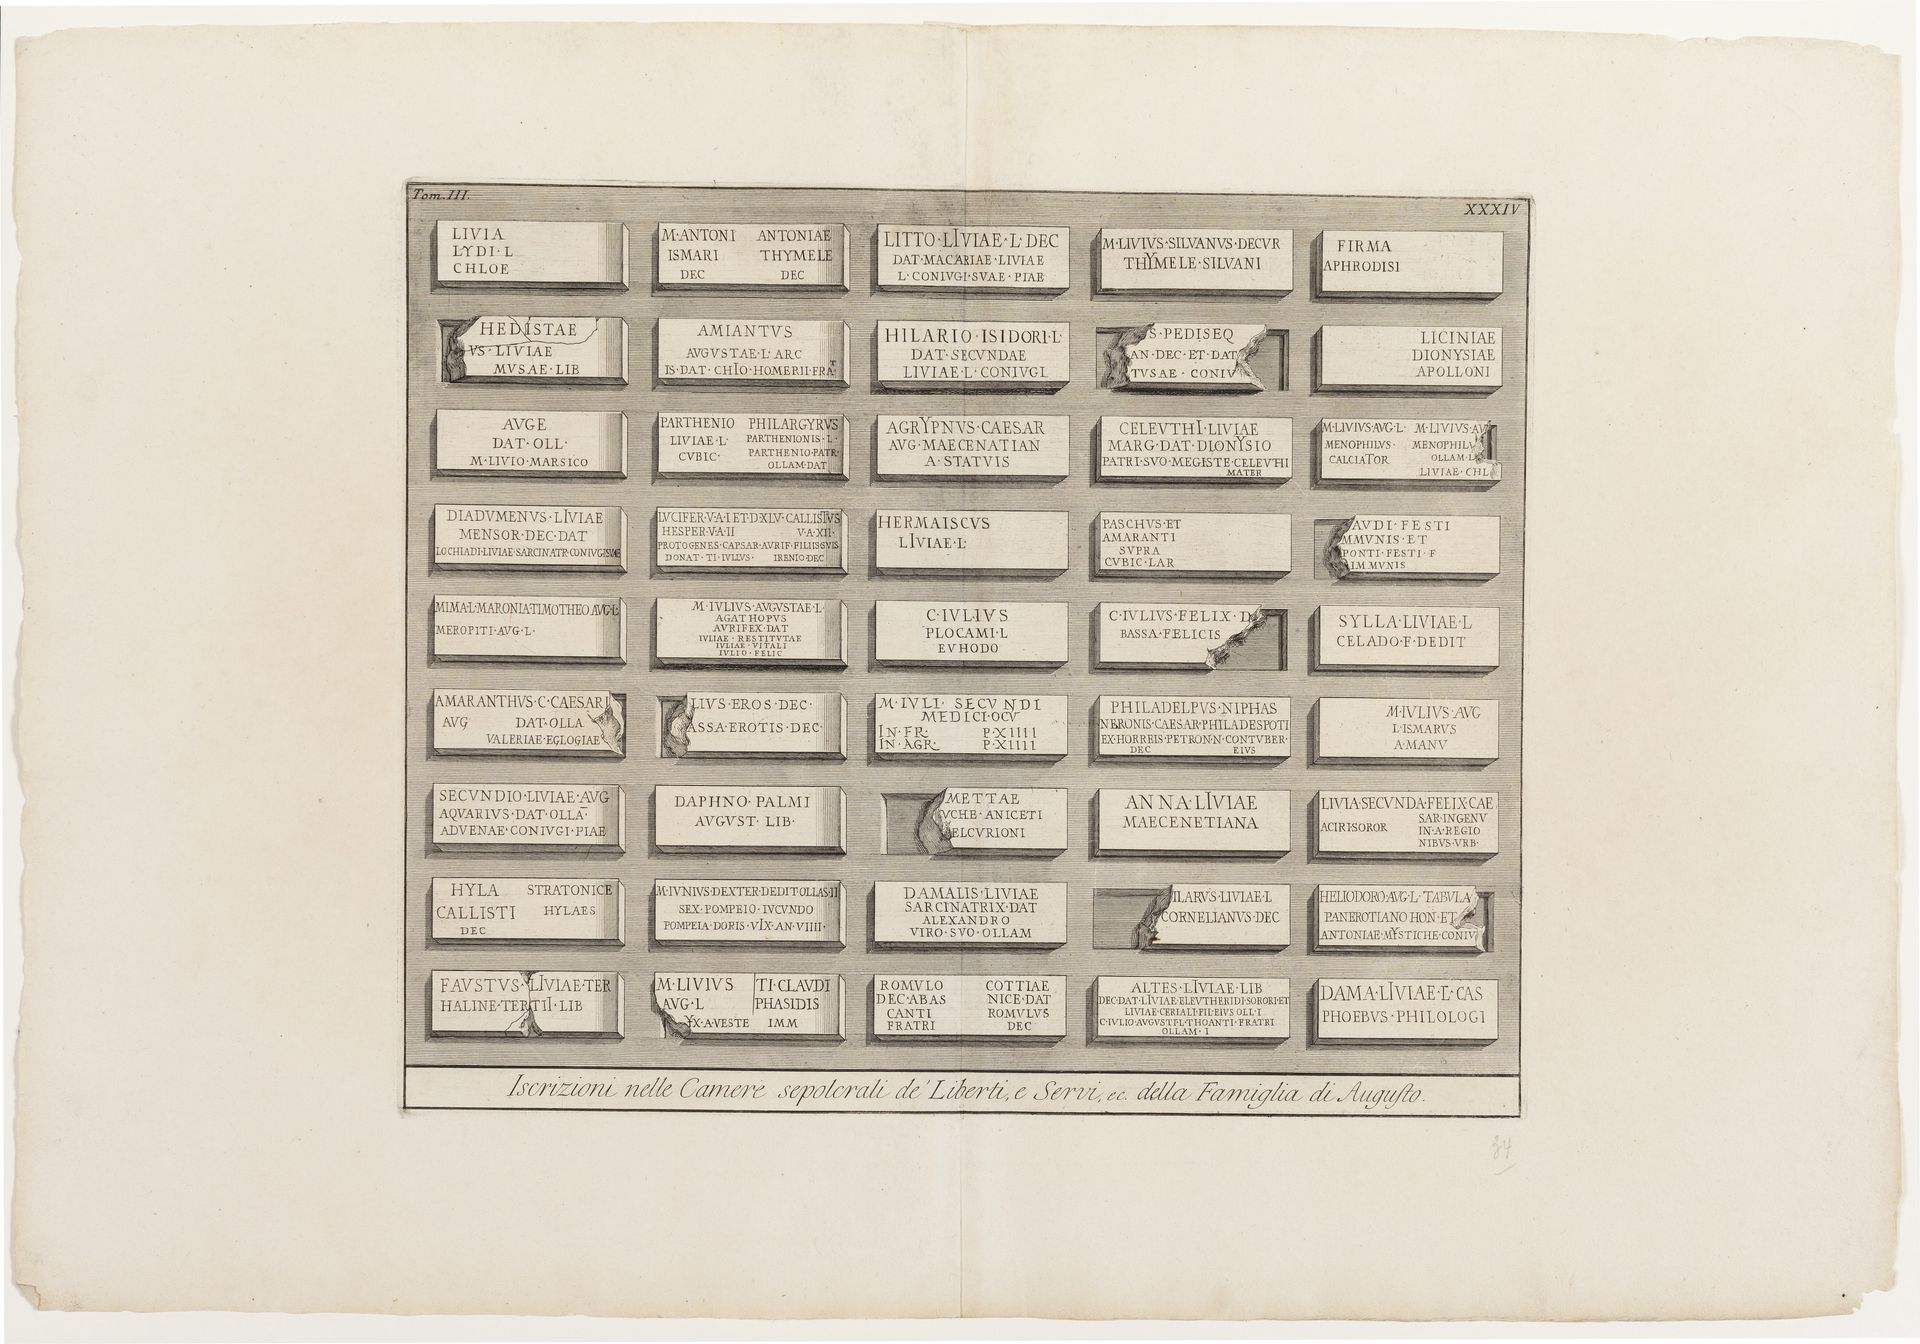 Tom. III.
XXXIV
LIVIA
LYDI·L
CHLOE
M·ANTONI ANTONIAE
ISMARI THYMELE
DEC DEC
LITTO·LIVIAE·L·DEC
DAT·MACARIAE·LIVIAE
L·CONIVGI·SVAE·PIAE
M·LIVIVS·SILVANVS·DECVR
THYMELE·SILVANI
FIRMA
APHRODISI
HEDISTAE
VS·LIVIAE
MVSAE·LIB
AMIANTVS
AVGVSTAE·L·ARC
IS·DAT·CHIO·HOMERII·FRAT
HILARIO·ISIDORI·L·
DAT·SECVNDAE
LIVIAE·L·CONIVGI
S·PEDISEQ
AN·DEC·ET·DAT
TVSAE·CONIV
LICINIAE
DIONYSIAE
APOLLONI
AVGE
DAT·OLL·
M·LIVIO·MARSICO
PARTHENIO PHILARGYRVS
LIVIAE·L· PARTHENIONIS·L·
CVBIC· PARTHENIO·PATR·
OLLAM·DAT
AGRYPNVS·CAESAR
AVG·MAECENATIAN
A·STATVIS
CELEVTHI·LIVIAE
MARG·DAT·DIONYSIO
PATRI·SVO·MEGISTE·CELEVTHI
MATER
M·LIVIVS·AVG·L· M·LIVIVS·AV
MENOPHILVS· MENOPHILV
CALCIATOR OLLAM·D
LIVIAE·CHL
DIADVMENVS·LIVIAE
MENSOR·DEC·DAT
LOCHIADI·LIVIAE·SARCINATR·CONIVGISVAE
LVCIFER·V·A·I·ET·D·XLV·CALLISTVS
HESPER·V·A·II V·A·XII·
PROTOGENES·CAPSAR·AVRIF·FILIIS·SVIS
DONAT·TI·IVLIVS· IRENIO·DEC
HERMAISCVS
LIVIAE·L·
PASCHVS·ET
AMARANTI
SVPRA
CVBIC·LAR
AVDI·FESTI
MMVNIS·ET
PONTI·FESTI·F
IMMVNIS
MIMA·L·MARONIA·TIMOTHEO AVG·L·
MEROPITI·AVG·L·
M·IVLIVS·AVGVSTAE·L·
AGATHOPVS
AVRIFEX·DAT
IVLIAE·RESTITVTAE
IVLIAE·VITALI
IVLIO·FELIC
C·IVLIVS
PLOCAMI·L
EVHODO
C·IVLIVS·FELIX·D
BASSA·FELICIS
SYLLA·LIVIAE·L
CELADO·F·DEDIT
AMARANTHVS·C·CAESARI
AVG DAT·OLLA
VALERIAE·EGLOGIAE
LIVS·EROS·DEC·
ASSA·EROTIS·DEC·
M·IVLI·SECVNDI
MEDICI·OCV
IN·FR· P·XIIII
IN·AGR· P·XIIII
PHILADELPVS·NIPHAS
NERONIS·CAESAR·PHILADESPOTI
EX·HORREIS·PETRON·N·CONTVBER·
DEC EIVS
M·IVLIVS·AVG
L·ISMARVS
A·MANV
SECVNDIO·LIVIAE·AVG
AQVARIVS·DAT·OLLA·
ADVENAE·CONIVGI·PIAE
DAPHNO·PALMI
AVGVST·LIB·
METTAE
VCHE·ANICETI
ELCVRIONI
ANNA·LIVIAE
MAECENETIANA
LIVIA·SECVNDA·FELIX·CAE
SAR·INGENV
ACIRI·SOROR IN·A·REGIO
NIBVS·VRB·
HYLA STRATONICE
CALLISTI HYLAES
DEC
M·IVNIVS·DEXTER·DEDIT·OLLAS·II
SEX·POMPEIO·IVCVNDO
POMPEIA·DORIS·VIX·AN·VIIII·
DAMALIS·LIVIAE
SARCINATRIX·DAT
ALEXANDRO
VIRO·SVO·OLLAM
ILARVS·LIVIAE·L
CORNELIANVS·DEC
HELIODORO·AVG·L·TABVLA
PANEROTIANO HON·ET
ANTONIAE·MYSTICHE·CONIV
FAVSTVS·LIVIAE·TER
HALINE·TERTII·LIB
M·LIVIVS TI·CLAVDI
AVG·L PHASIDIS
YX·A·VESTE IMM
ROMVLO COTTIAE
DEC·ABAS NICE·DAT
CANTI ROMVLVS
FRATRI DEC
ALTES·LIVIAE·LIB
DEC·DAT·LIVIAE·ELEVTHERIDI·SORORI·ET
LIVIAE·CERIALI·FIL·EIVS OLL·I
C·IVLIO·AVGVSTI·L·THOANTI·FRATRI
OLLAM·I
DAMA·LIVIAE·L·CAS
PHOEBVS·PHILOLOGI
Iscrizioni nelle Camere sepolcrali de' Liberti, e Servi, ec. della Famiglia di Augusto.
34